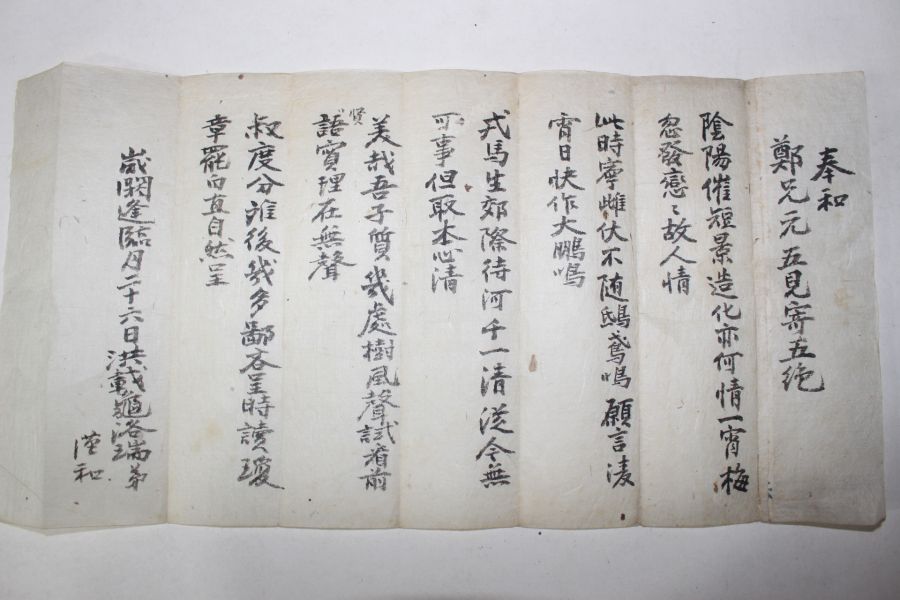 奉和
鄭兄元五見寄五絶
陰陽催短景造化亦何情一宵梅
忽發戀〻故人情
此時寧雌伏不随鴟鳶鳴願言凌
霄日快作大鵬鳴
戎馬生郊際待河千一清従今無
可事但取本心清
美哉吾子質幾處樹風聲試看前
賢
語實理在無聲
叔度分離後幾多鄙吝呈時讀瓊
章罷面直自然呈
歲閼逢臨月二十六日洪載龜洛瑞弟
謹和